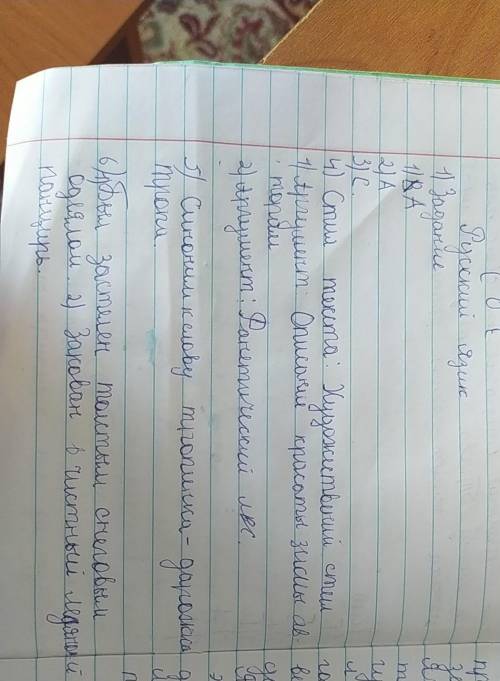 Русский язык
1) Задание
1) А
2) А
3) С.
4) Стиль текста: Художественный стиль
1) Аргумент: Описание красоты зимы ав-
тором
2) Аргумент:
5) Синоним к слову тропинка - дорожка
тропа.
6) 1) Был застелен толстым снеговым
одеялом. 2) Закован в чистный ледяной
панцирь.